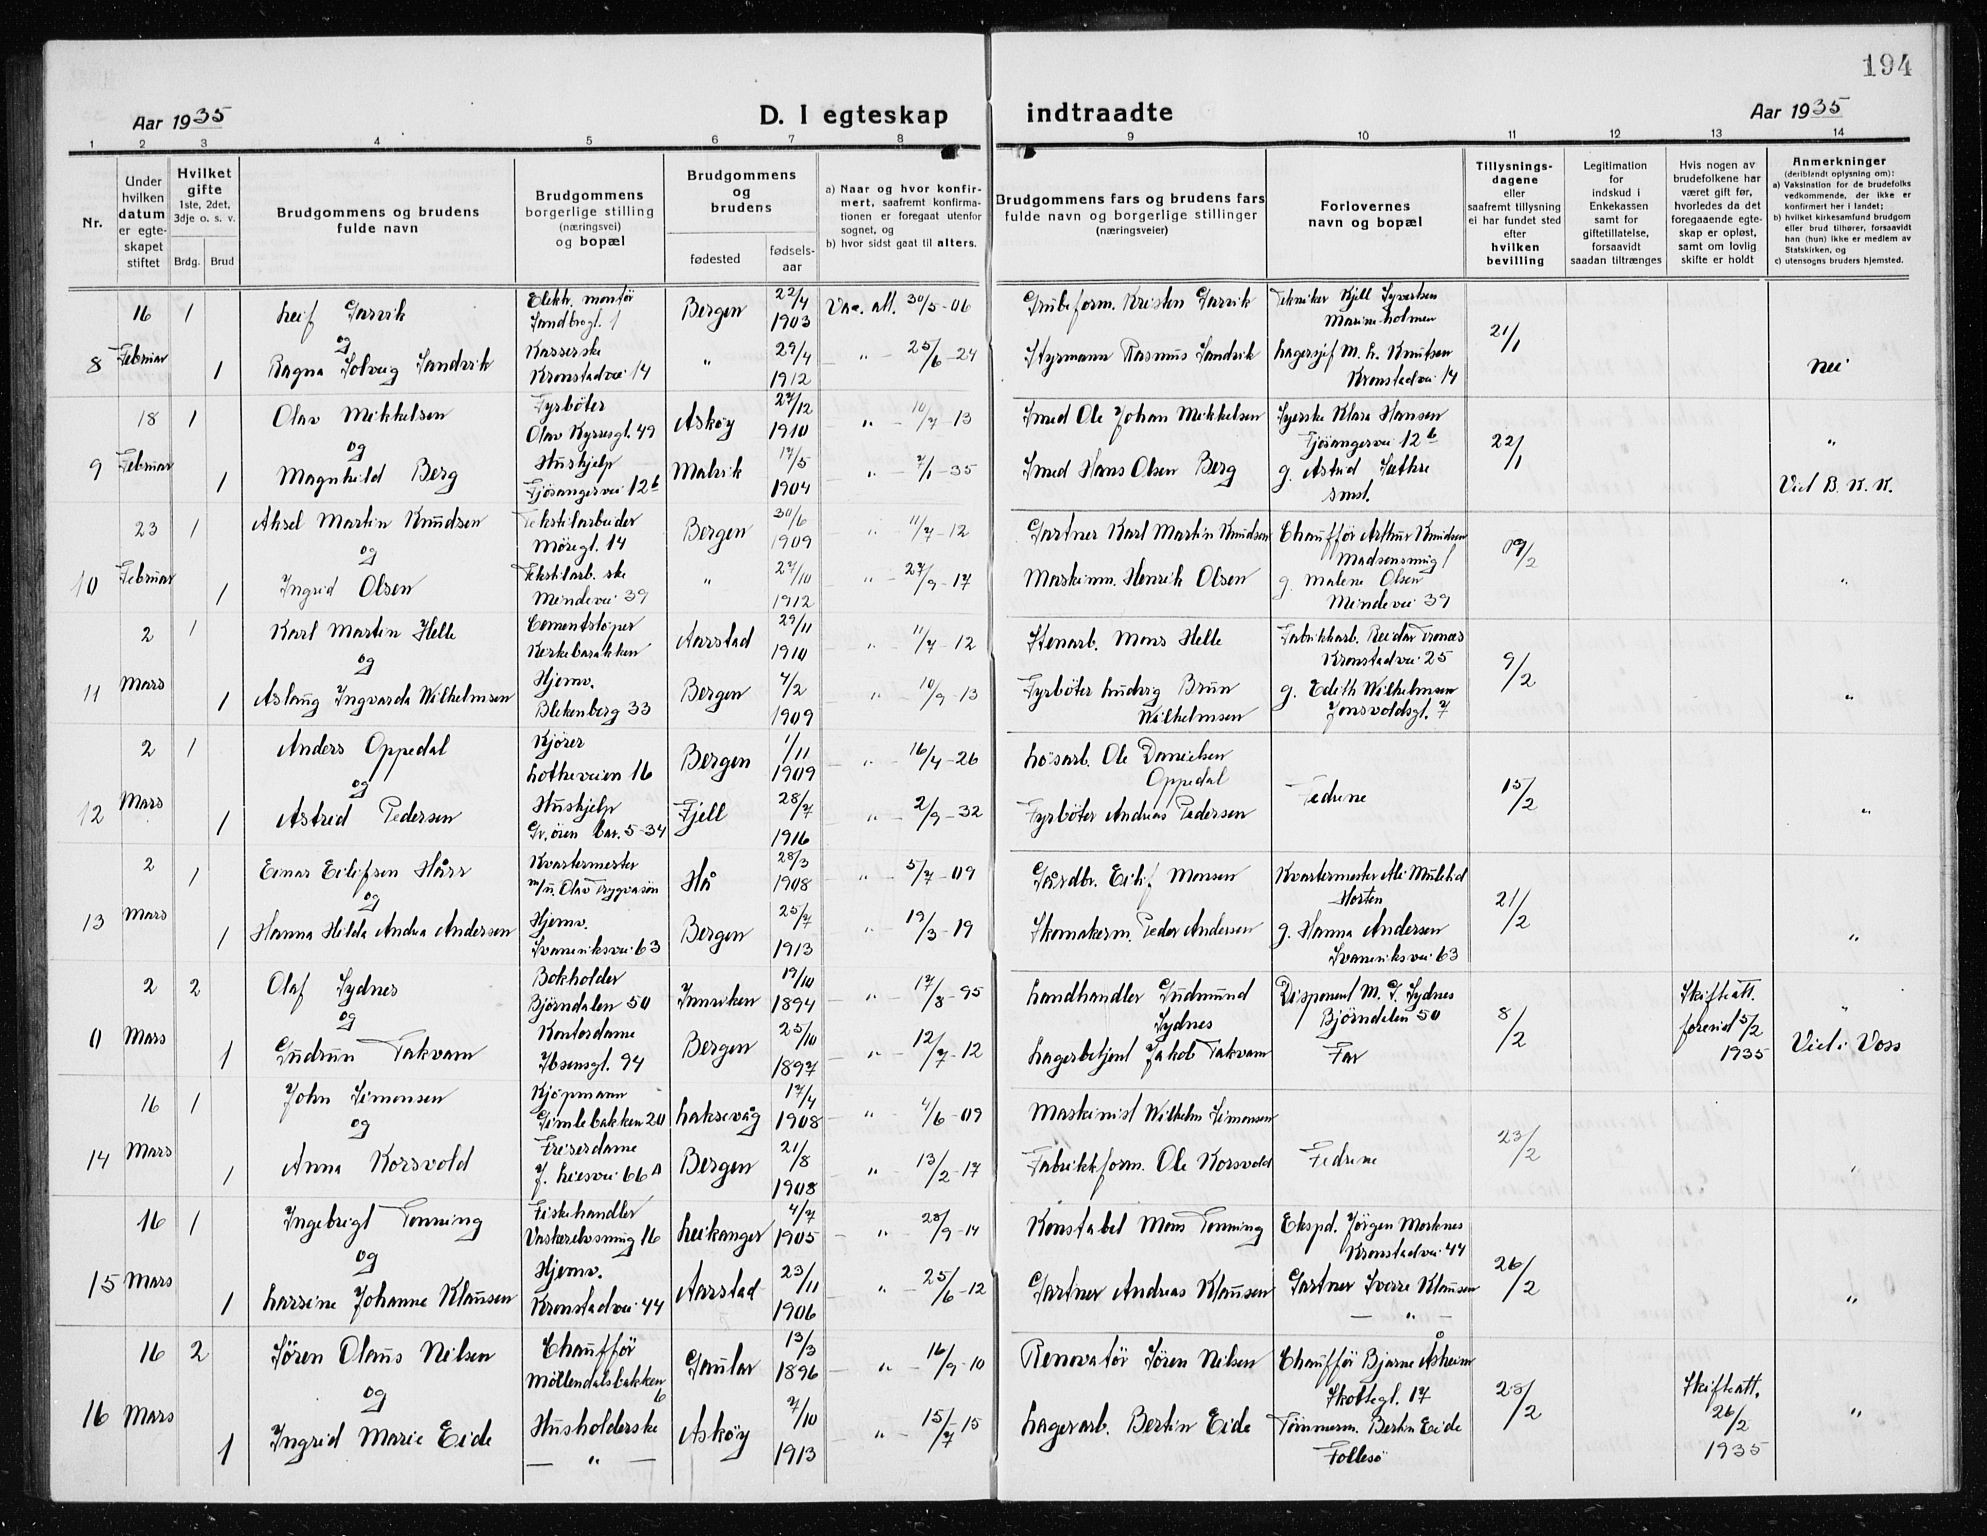 194
Aar 1935
D. I egteskap indtraadte
Aar 1935
1 2 3 4 5 6 7 8 9 10 11 12 13 14
Nr.
Under hvilken datum er egteskapet stiftet
Hvilket gifte 1ste, 2det, 3dje o. s. v.
Brdg. Brud
Brudgommens og brudens fulde navn
Brudgommens borgerlige stilling (næringsvei) og bopæl
Brudgommens og brudens
fødested
fødsels-aar
a) Naar og hvor konfirmert, saafremt konfirmationen er foregaat utenfor sognet, og
b) hvor sidst gaat til alters.
Brudgommens fars og brudens fars fulde navn og borgerlige stillinger (næringsveier)
Forlovernes navn og bopæl
Tillysningsdagene eller saafremt tillysning ei har fundet sted efter hvilken bevilling
Legitimation for indskud i Enkekassen samt for giftetillatelse, forsaavidt saadan tiltrænges
Hvis nogen av brudefolkene har været gift før, hvorledes da det foregaaende egteskap er opløst, samt om lovlig skifte er holdt
Anmerkninger (deriblandt oplysning om):
a) Vaksination for de brudefolks vedkommende, der ikke er konfirmert her i landet;
b) hvilket kirkesamfund brudgom eller brud tilhører, forsaavidt han (hun) ikke er medlem av Statskirken, og
c) utensogns bruders hjemsted.
16 1 Leif Garvik Elektr. montør Sandbrogt. 1 Bergen 22/4 1903 Vac. att. 30/5-06 Grubeform. Kristen Garvik Tekniker Kjell Syvertsen Marineholmen 21/1
og
8 Februar 1 Ragna Solveig Sandvik Kasserske Kronstadvei 14 " 29/4 1912 " 25/6-24 Styrmann Rasmus Sandvik Lagersjef M. L. Knutsen Kronstadvei 14 nei
18 1 Olav Mikkelsen Fyrbøter Olav Kyrresgt. 49 Askøy 27/12 1910 " 10/7-13 Smed Ole Johan Mikkelsen Syerske Klara Hansen Fjøsangervei 12b 22/1 "
og
9 Februar 1 Magnhild Berg Hushjelp Fjøsangervei 12b Malvik 17/5 1904 " 7/1-35 Smed Hans Olsen Berg g. Astrid Sæthre smst. Viet B. K. K.
23 1 Aksel Martin Knudsen Tekstilarbeider Møregt. 14 Bergen 30/6 1909 " 11/7-12 Gartner Karl Martin Knudsen Chauffør Arthur Knudsen Madsensmug 1
og
10 Februar 1 Ingrid Olsen Tekstilarb. ske Mindevei 39 " 27/10 1912 " 27/9-17 Maskinm. Henrik Olsen g. Malene Olsen Mindevei 39 "
2 1 Karl Martin Helle Cementstøper Kirkebarakken Aarstad 29/11 1910 " 11/7-12 Stenarb. Mons Helle Fabrikkarb. Reidar Tronæs Kronstadvei 25 9/2
og
11 Mars 1 Aslaug Ingvarda Wilhelmsen Hjemv. Blekenberg 33 Bergen 4/2 1909 " 10/9-13 Fyrbøter Ludvig Brun Wilhelmsen g. Edith Wilhelmsen Jonsvoldsgt. 7 "
2 1 Anders Oppedal Kjører Lotheveien 16 Bergen 1/11 1909 " 16/4-26 Løsarb. Ole Danielsen Oppedal Fedrene 15/2
og
12 Mars 1 Astrid Pedersen Hushjelp Gr. øren bar. 5-34 Fjell 28/7 1916 " 2/9-32 Fyrbøter Andreas Pedersen "
2 1 Einar Eilifsen Hårr Kvartermester m/u. Olav Trygvason Hå 28/3 1908 " 5/7-09 Gårdbr. Eilif Monsen Kvartermester Horten 21/2
og
13 Mars 1 Hanna Hilda Andrea Andersen Hjemv. Ivareriksvei 63 Bergen 25/7 1913 " 19/3-19 Skomakerm. Peder Andersen g. Hanna Andersen Ivareriksvei 63 "
2 2 Olaf Sydnes Bokholder Bjørndalen 50 Innviken 19/10 1894 " 17/8-95 Landhandler Gudmund Sydnes Disponent M. G. Sydnes Bjørndalen 50 8/2 Skifteatt. forevist 5/2 1935 "
og
0 Mars 1 Gudrun Takvam Kontordame Ibsensgt. 94 Bergen 25/10 1897 " 12/7-12 Lagerbetjent Jakob Takvam Far Viet i Voss
16 1 John Simonsen Kjøpmann Gimlebakken 20 Laksevåg 17/4 1908 " 4/6-09 Maskinist Wilhelm Simonsen 23/2
og
14 Mars 1 Anna Korsvold Friserdame J. Liesvei 66A Bergen 21/8 1908 " 13/2-17 Fabrikkform. Ole Korsvold Fedrene "
16 1 Ingebrigt Tonning Fiskehandler Vaskerelvsmug 16 Leikanger 4/7 1905 " 28/9-14 Konstabel Mons Tonning Ekspd. Jørgen Morknes Kronstadvei 44 26/2
og
15 Mars 1 Larsine Johanne Klausen Hjemv. Kronstadvei 44 Aarstad 23/11 1906 " 25/6-12 Gartner Andreas Klausen Gartner Sverre Klausen — " — "
16 2 Søren Olaus Nilsen Chauffør Møllendalsbakken 6 Gaular 13/3 1896 " 16/9-10 Renovatør Søren Nilsen Chauffør Bjarne Åsheim Skottegt. 17 28/2 Skifteatt. 26/2 1935
og
16 Mars 1 Ingrid Marie Eide Husholderske — " — Askøy 7/10 1913 " 15/7-15 Lagerarb. Bertin Eide Tømmerm. Bertin Eide Follesø "